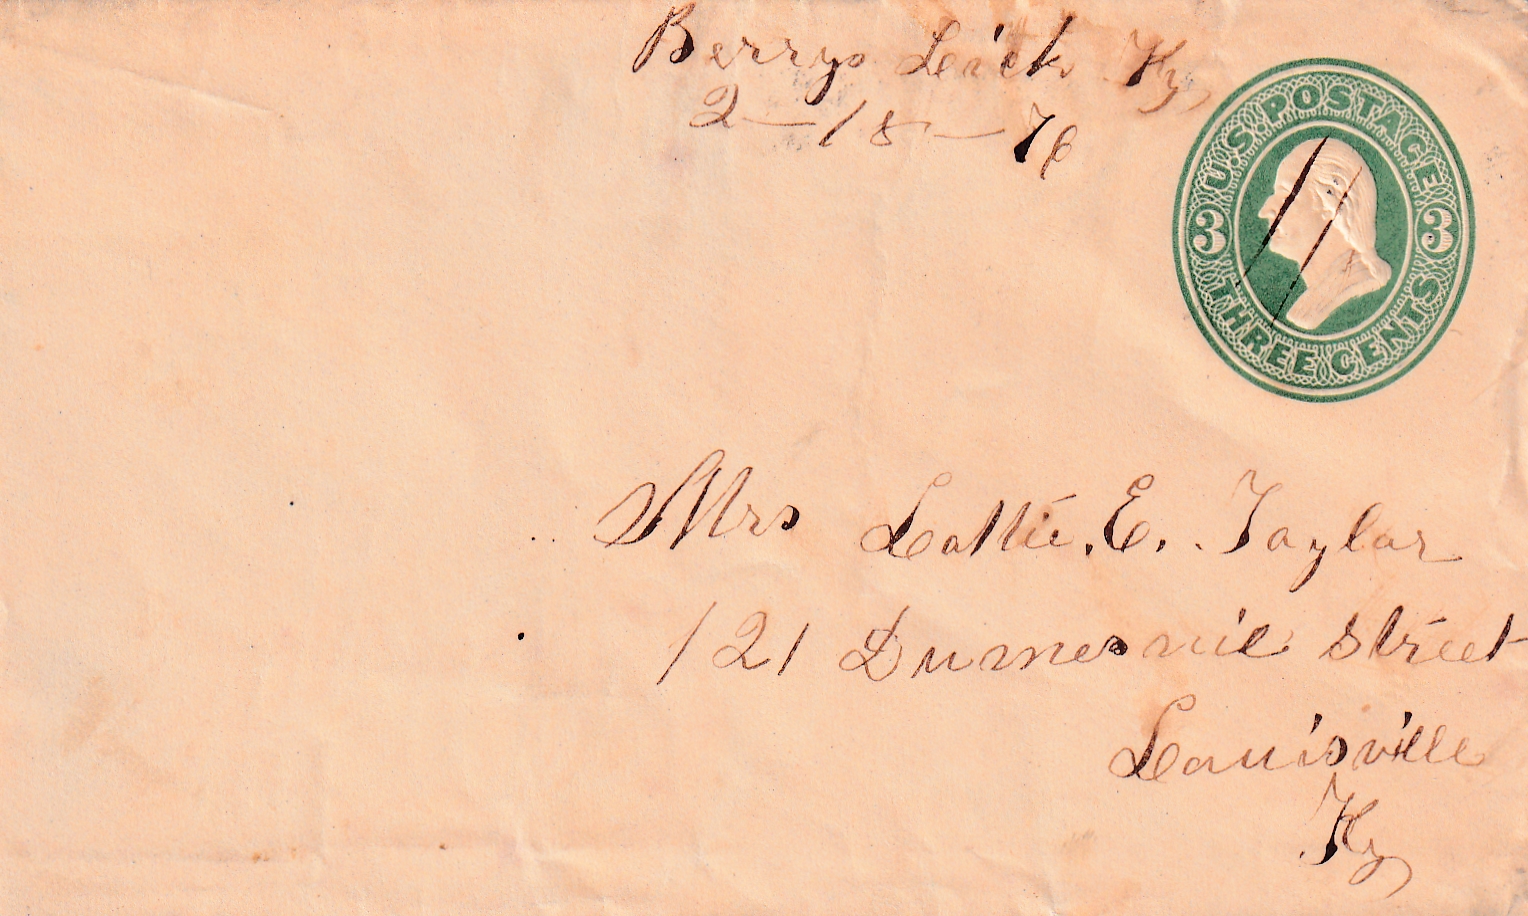 Berrys Lick Ky,
2 — 18 — 76
U.S. POSTAGE
3 3
THREE CENTS
Mrs Lottie. E. Taylor
121 Dumesnie Street
Louisville
Ky